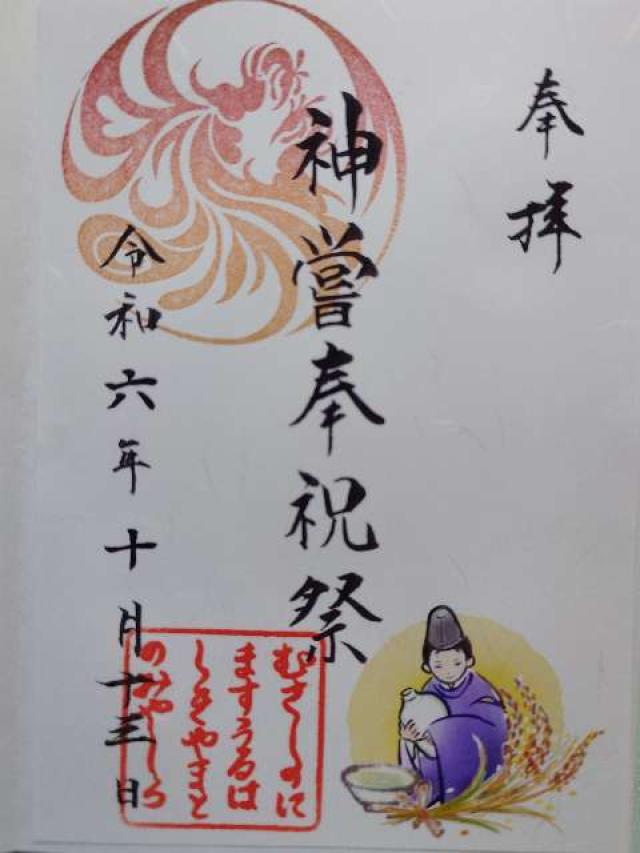 奉拝
神嘗奉祝祭
令和六年十月十三日
むさしのに
ますうるは
しきやまと
のみやしろ